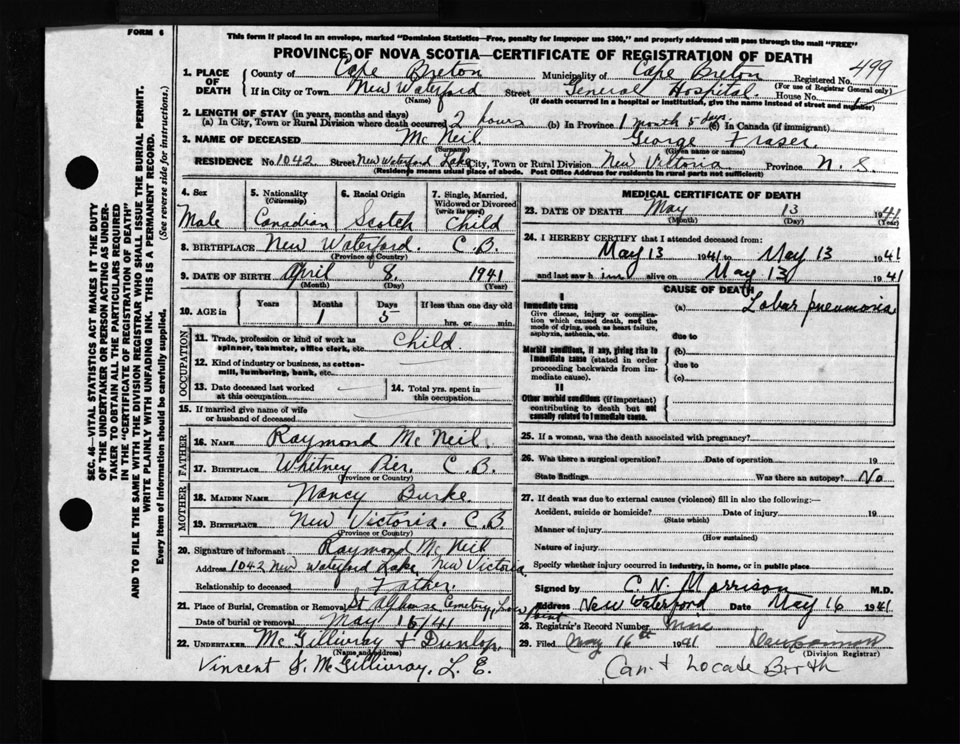 FORM 6
This form if placed in an envelope, marked "Dominion Statistics—Free, penalty for improper use $300," and properly addressed will pass through the mail "FREE"
PROVINCE OF NOVA SCOTIA—CERTIFICATE OF REGISTRATION OF DEATH
1. PLACE OF DEATH County of Cape Breton Municipality of Cape Breton Registered No. 499
(For use of Registrar General only)
If in City or Town New Waterford Street General Hospital House No.
(Name) (If death occurred in a hospital or institution, give the name instead of street and number)
2. LENGTH OF STAY (in years, months and days)
(a) In City, Town or Rural Division where death occurred 2 hours (b) In Province 1 month 5 days (c) In Canada (if immigrant)
3. NAME OF DECEASED Mc Neil George Fraser
(Surname) (Given name or names)
RESIDENCE No. 1042 Street New Waterford Lake City, Town or Rural Division New Victoria Province N. S.
(Residence means usual place of abode. Post Office Address for residents in rural parts not sufficient)
4. Sex 5. Nationality (Citizenship) 6. Racial Origin 7. Single, Married, Widowed or Divorced (write the word)
Male Canadian Scotch Child
8. BIRTHPLACE New Waterford. C.B.
(Province or Country)
9. DATE OF BIRTH April 8, 1941
(Month) (Day) (Year)
10. AGE in Years Months Days If less than one day old
1 5 hrs. or min.
OCCUPATION
11. Trade, profession or kind of work as spinner, teamster, office clerk, etc. Child
12. Kind of industry or business, as cotton-mill, lumbering, bank, etc.
13. Date deceased last worked at this occupation 14. Total yrs. spent in this occupation
15. If married give name of wife or husband of deceased
FATHER
16. NAME Raymond Mc Neil.
17. BIRTHPLACE Whitney Pier. C.B.
(Province or Country)
MOTHER
18. MAIDEN NAME Nancy Burke.
19. BIRTHPLACE New Victoria. C.B.
(Province or Country)
20. Signature of informant Raymond Mc Neil
Address 1042 New Waterford Lake, New Victoria
Relationship to deceased Father.
21. Place of Burial, Cremation or Removal St Alphonse Cemetery, Low Point
Date of burial or removal May 15/41
22. UNDERTAKER McGillivray & Dunlop.
(Name and address)
Vincent J. McGillivray, L. E.
MEDICAL CERTIFICATE OF DEATH
23. DATE OF DEATH May 13 1941
(Month) (Day) (Year)
24. I HEREBY CERTIFY that I attended deceased from:
May 13 1941 to May 13 1941
and last saw him alive on May 13 1941
CAUSE OF DEATH
I
Immediate cause (a) Lobar pneumonia
Give disease, injury or complication which caused death, not the mode of dying, such as heart failure, asphyxia, asthenia, etc. due to
Morbid conditions, if any, giving rise to immediate cause (stated in order proceeding backwards from immediate cause). (b)
due to
(c)
II
Other morbid conditions (if important) contributing to death but not causally related to immediate cause.
25. If a woman, was the death associated with pregnancy?
26. Was there a surgical operation? Date of operation 19
State findings Was there an autopsy? No
27. If death was due to external causes (violence) fill in also the following:—
Accident, suicide or homicide? Date of injury 19
(State which)
Manner of injury
(How sustained)
Nature of injury
Specify whether injury occurred in industry, in home, or in public place
Signed by C. N. Morrison M.D.
Address New Waterford Date May 16 1941
28. Registrar's Record Number
29. Filed May 16th 1941
(Division Registrar)
Can't Locate Birth
SEC. 46—VITAL STATISTICS ACT MAKES IT THE DUTY
OF THE UNDERTAKER OR PERSON ACTING AS UNDER-
TAKER TO OBTAIN ALL THE PARTICULARS REQUIRED
IN THE "CERTIFICATE OF REGISTRATION OF DEATH"
AND TO FILE THE SAME WITH THE DIVISION REGISTRAR WHO SHALL ISSUE THE BURIAL PERMIT.
WRITE PLAINLY WITH UNFADING INK. THIS IS A PERMANENT RECORD.
Every item of information should be carefully supplied. (See reverse side for instructions.)